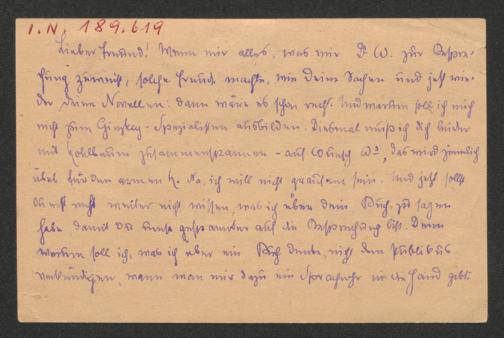 I.N. 189.619
Lieber Freund! Wenn mir alles, was mir Dr W. zur Bespre-
chung zuweist, solche Freude machte, wie deine Sachen und jetzt wie-
der deine Novellen, dann wäre es schon recht. Und warum soll ich mich
nicht zum Ginzkey-Spezialisten ausbilden. Diesmal muß ich dich leider
mit Hohlbaum zusammenspannen - auf Wunsch Ws, das wird ziemlich
übel für den armen H. Na, ich will nicht grausam sein. Und jetzt sollst
du erst recht weiter nicht wissen, was ich über dein Buch zu sagen
habe damit du umso gespannter auf die Besprechung bist. Denn
warum soll ich, was ich über ein Buch denke, nicht dem Publikus
verkündigen, wenn man mir dazu ein Sprachrohr in die Hand gibt.